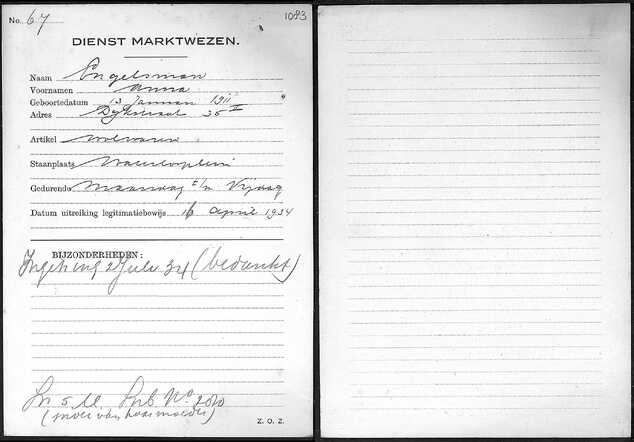 No. 67
1083
DIENST MARKTWEZEN.
Naam Engelsman
Voornamen Anna
Geboortedatum 13 Januari 1911
Adres Dijkstraat 35 II
Artikel wolwaren
Staanplaats Waterlooplein
Gedurende Maandag t/m Vrijdag
Datum uitreiking legitimatiebewijs 16 April 1934
BIJZONDERHEDEN:
Ingetr. ing 2 Juli 34 (bedankt)
No 2080
(moeder)
Z. O. Z.